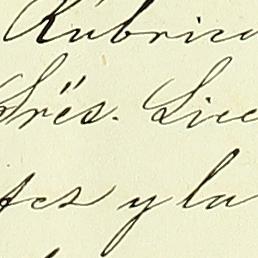 Rubrica
Srës. Lice
tes y la